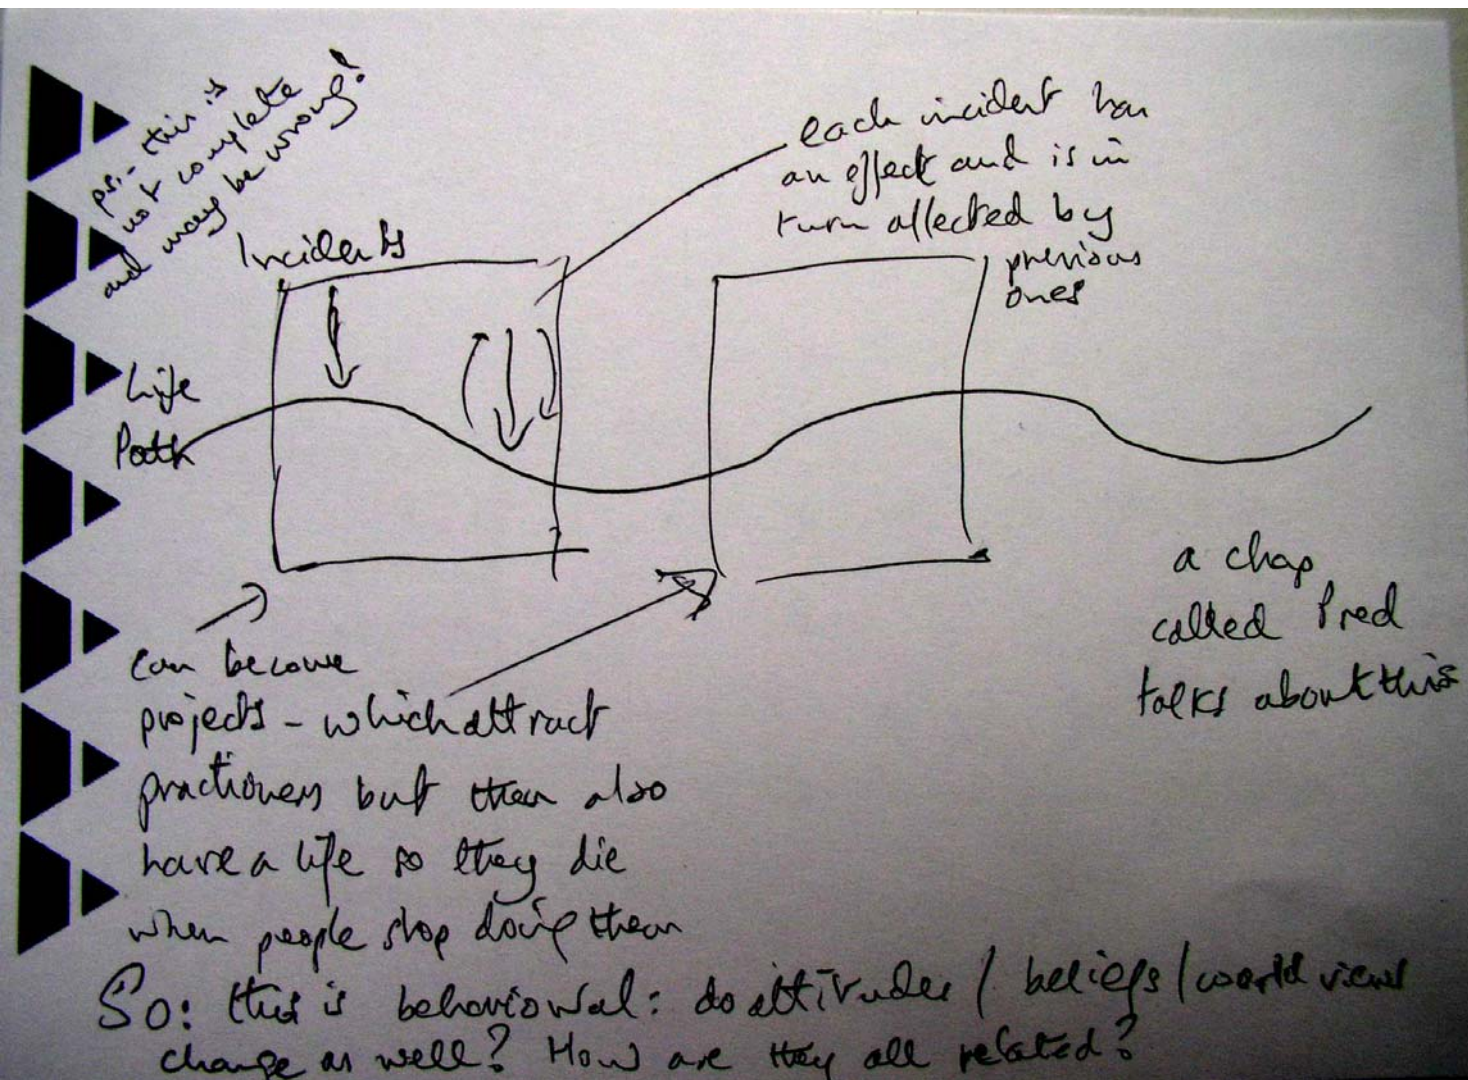 ps. - this is
not complete
and may be wrong!
each incident has
an effect and is in
turn affected by
previous
ones
Incidents
Life
Path
a chap
called Pred
talks about this
can become
projects - which attract
practioners but then also
have a life so they die
when people stop doing them
So: this is behavioural: do attitudes / beliefs / world views
change as well? How are they all related?